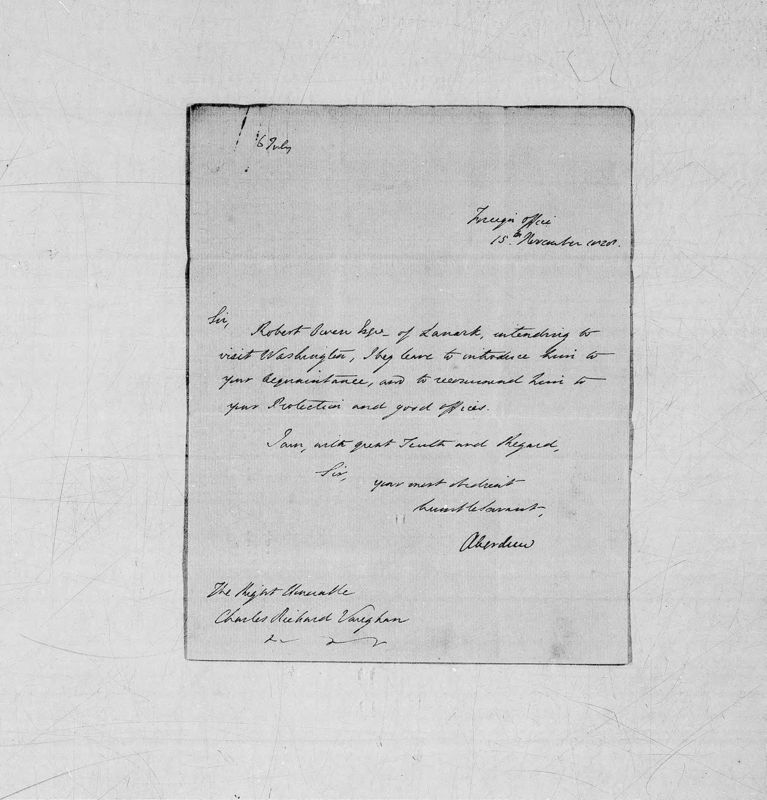 6 July
Foreign Office
15th November 1828.
Sir,
Robert Owen Esqre of Lanark, intending to
visit Washington, I beg leave to introduce him to
your Acquaintance, and to recommend him to
your Protection and good offices.
I am, with great Truth and Regard,
Sir,
your most obedient
humble Servant,
Aberdeen
The Right Honorable
Charles Richard Vaughan